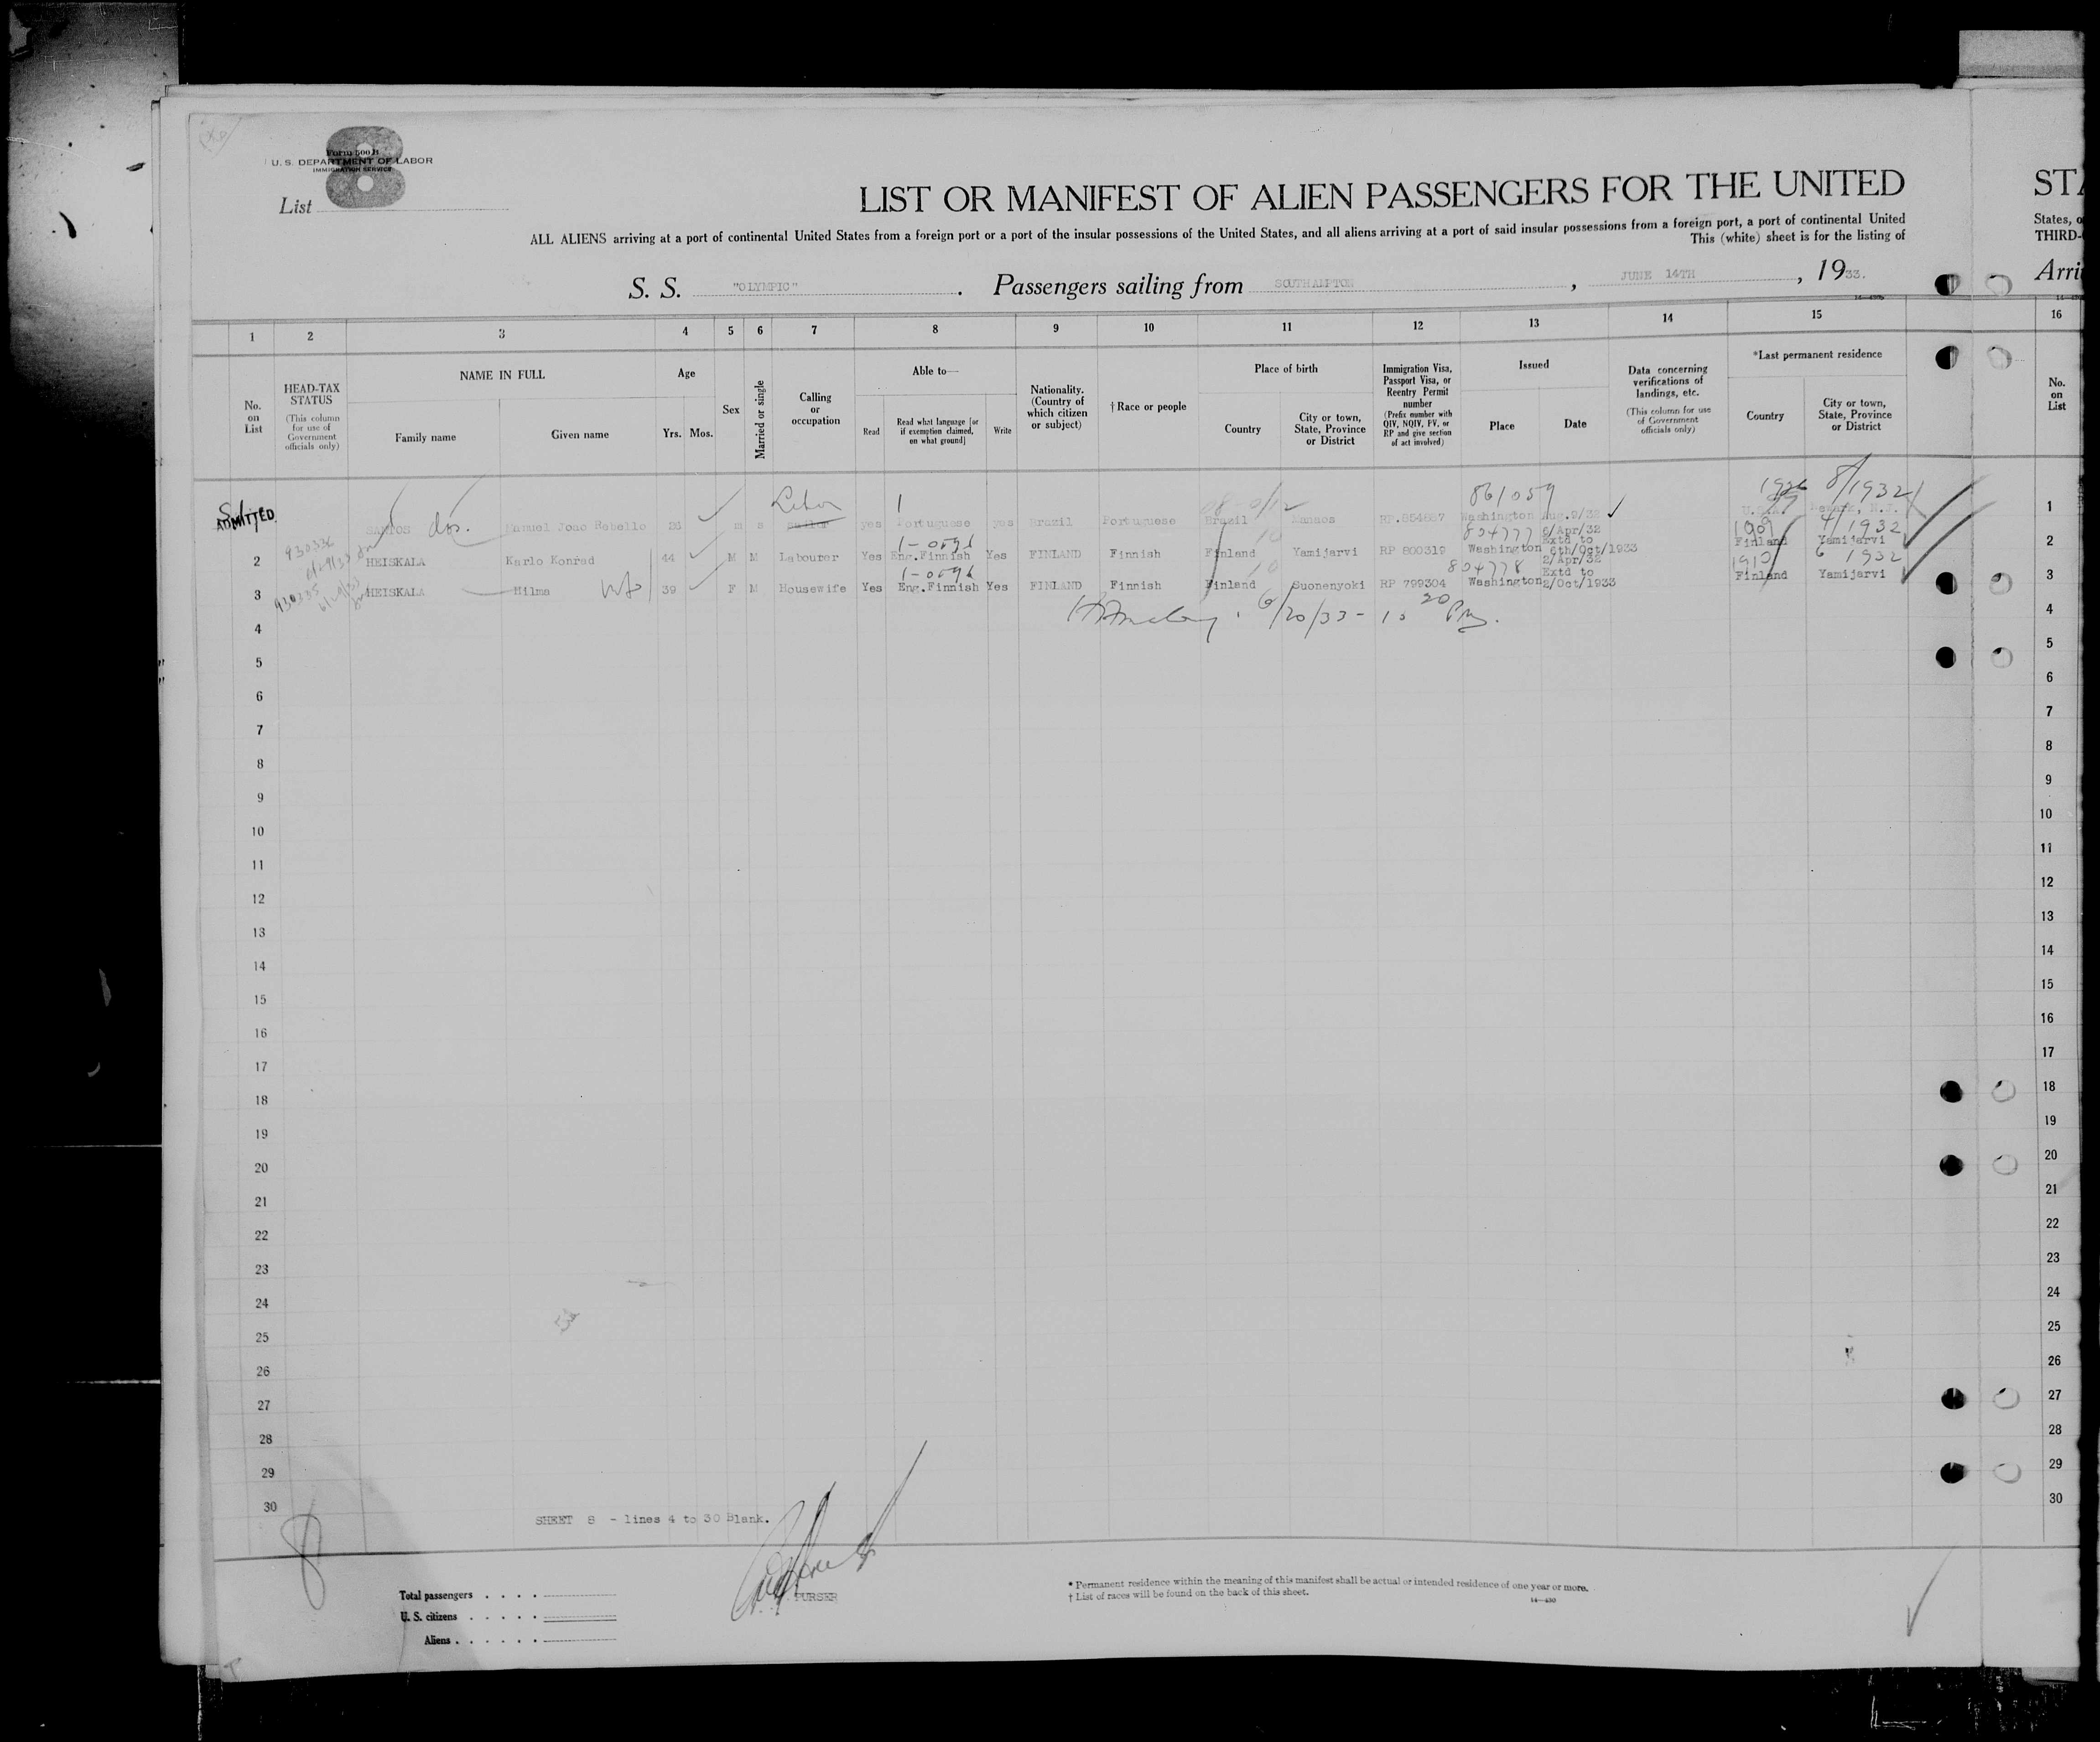 Form 500 B
U. S. DEPARTMENT OF LABOR
IMMIGRATION SERVICE
8
List
LIST OR MANIFEST OF ALIEN PASSENGERS FOR THE UNITED
STA
ALL ALIENS arriving at a port of continental United States from a foreign port or a port of the insular possessions of the United States, and all aliens arriving at a port of said insular possessions from a foreign port, a port of continental United
States, o
This (white) sheet is for the listing of
THIRD-
S. S. "OLYMPIC". Passengers sailing from SOUTHAMPTON, JUNE 14TH, 1933.
Arri
1 2 3 4 5 6 7 8 9 10 11 12 13 14 15 16
No. on List
HEAD-TAX STATUS (This column for use of Government officials only)
NAME IN FULL
Family name Given name
Age
Yrs. Mos.
Sex
Married or single
Calling or occupation
Able to—
Read
Read what language [or if exemption claimed, on what ground]
Write
Nationality. (Country of which citizen or subject)
†Race or people
Place of birth
Country
City or town, State, Province or District
Immigration Visa, Passport Visa, or Reentry Permit number (Prefix number with QIV, NQIV, PV, or RP and give section of act involved)
Issued
Place Date
Data concerning verifications of landings, etc. (This column for use of Government officials only)
*Last permanent residence
Country
City or town, State, Province or District
No. on List
861059 1926 8/1932
ADMITTED SANTOS dos. Manuel Joao Rebello 28 m s sailor yes Portuguese yes Brazil Portuguese Brazil Manaos RP.854687 Washington Aug.9/32 U.S.A. Newark, N.J. 1
930336 804777 6/Apr/32 1909 4/1932
2 HEISKALA Karlo Konrad 44 M M Labourer Yes Eng.Finnish Yes FINLAND Finnish Finland Yamijarvi RP 800319 Washington Extd to 6th/Oct/1933 Finland Yamijarvi 2
930335 804778 2/Apr/32 1910 6 1932
3 HEISKALA Hilma wf 39 F M Housewife Yes Eng.Finnish Yes FINLAND Finnish Finland Suonenyoki RP 799304 Washington Extd to 2/Oct/1933 Finland Yamijarvi 3
6/20/33 -
4 4
5 5
6 6
7 7
8 8
9 9
10 10
11 11
12 12
13 13
14 14
15 15
16 16
17 17
18 18
19 19
20 20
21 21
22 22
23 23
24 24
25 25
26 26
27 27
28 28
29 29
30 30
SHEET 8 - lines 4 to 30 Blank.
8
PURSER
Total passengers
U. S. citizens
Aliens
* Permanent residence within the meaning of this manifest shall be actual or intended residence of one year or more.
† List of races will be found on the back of this sheet.
14—430